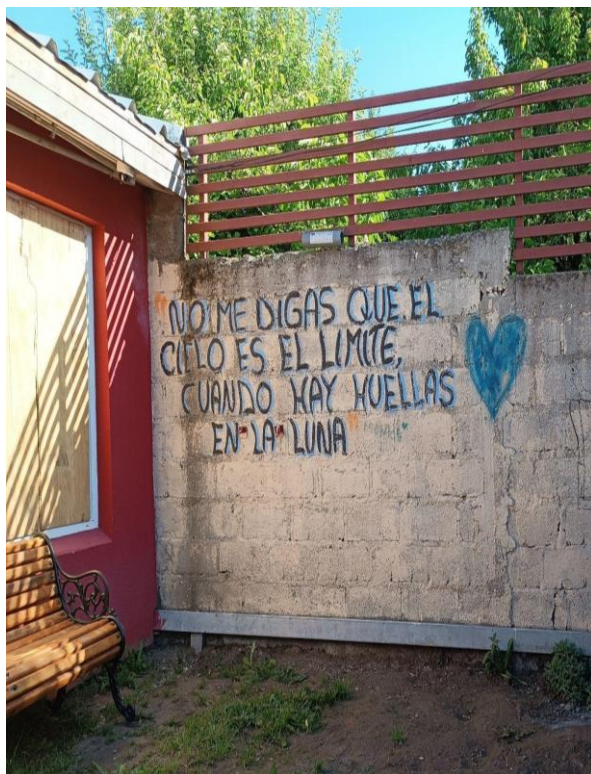 "NO ME DIGAS QUE EL
CIELO ES EL LIMITE,
CUANDO HAY HUELLAS
EN LA LUNA"